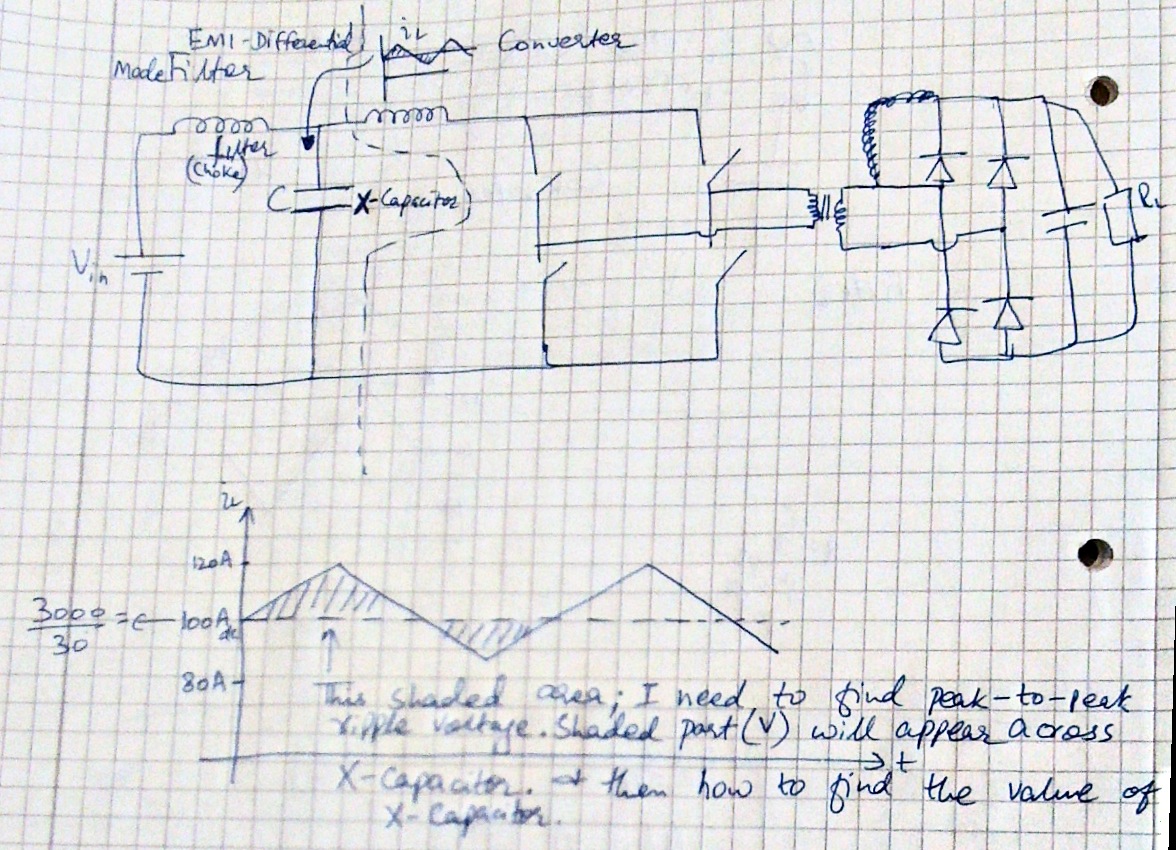 EMI-Differential
Mode Filter
iL
Converter
filter
(Choke)
C
X-Capacitor
Vin
RL
iL
120A
3000/30 = 100A
dc
80A
This shaded area; I need to find peak-to-peak
ripple voltage. Shaded part (V) will appear across
t
X-Capacitor. then how to find the value of
X-Capacitor.